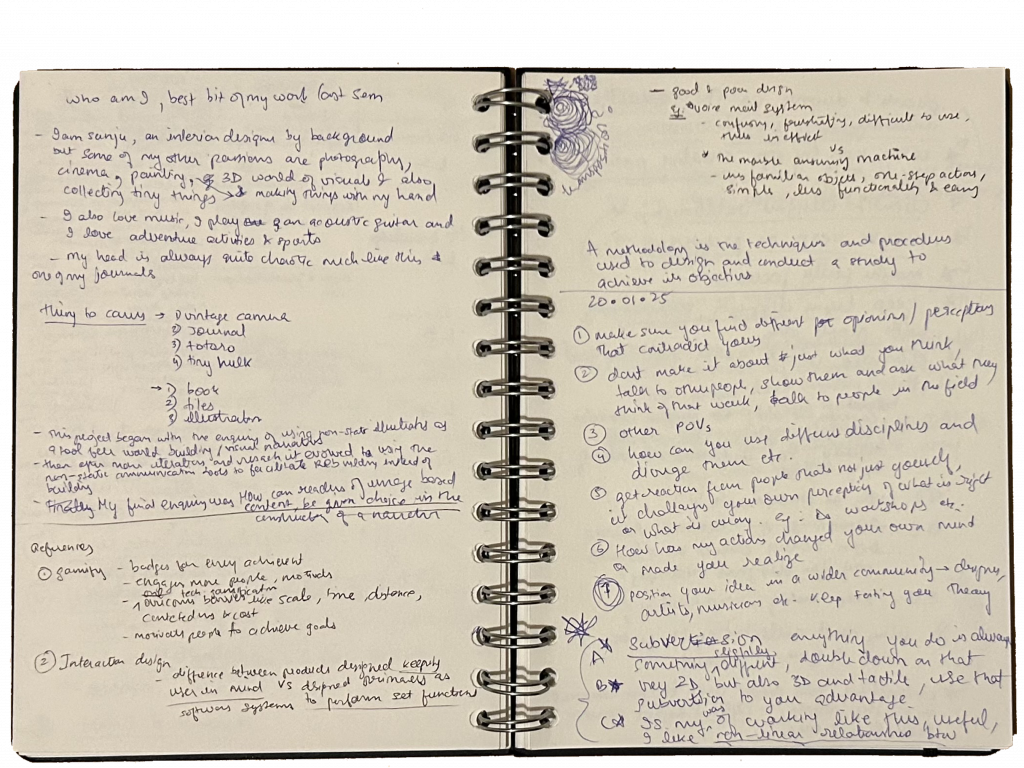 who am I, best bit of my work last sem
- I am sanju, an interior designer by background
but some of my other passions are photography,
cinema, painting, 3D world of visuals & also
collecting tiny things → making things with my hand
- I also love music, I play an acoustic guitar and
I love adventure activities & sports
- my head is always quite chaotic much like this
one of my journals
things to carry → 1) vintage camera
2) Journal
3) totoro
4) tiny hulk
→ 1) book
2) tiles
3) illustration
- This project began with the enquiry of using non-static illustrations as
a tool for world building / visual narratives
- then after more iterations and research it evolved to using the
non-static communication tools to facilitate instead of
building
- Finally My final enquiry was How can readers of image based
content be given choice in the
construction of a narrative
References
① gamify - badges for every achievement
- engages more people, motivates
tech: gamification
- overcomes barriers like scale, time, distance,
connectedness & cost
- motivates people to achieve goals
② Interaction design
- difference between products designed keeping
user in mind VS designed primarily as
software systems to perform set functions
- good & poor design
eg. * voice mail system
- confusing, frustrating, difficult to use,
VS
* the marble answering machine
- uses familiar objects, one-step actions,
simple, less functionality & easy
A methodology is the techniques and procedures
used to design and conduct a study to
achieve its objectives
20.01.25
① make sure you find different opinions / perceptions
that contradict yours
② dont make it about just what you think,
talk to other people, show them and ask what they
think of that work, talk to people in the field
③ other POVs
④ how can you use different disciplines and
diverge them etc.
⑤ get reaction from people thats not just yourself,
it challenges your own perception of what is right
or what is wrong. eg. Do workshops etc.
⑥ How has my actions changed your own mind
or made you realize
⑦ position your idea in a wider community → designers,
artists, musicians etc. Keep testing your theory
A* Subversion everything you do is always
something slightly different, double down on that
B* very 2D, but also 3D and tactile, use that
subversion to your advantage
C* Is my way of working like this, useful,
I like non-linear relationships btw